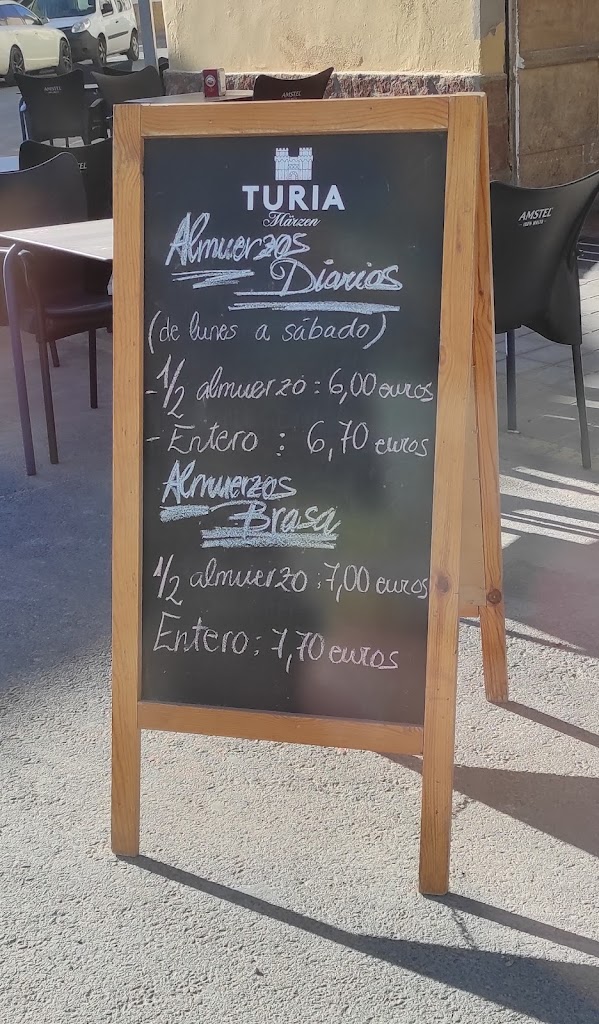 TURIA
Märzen
Almuerzos
Diarios
(de lunes a sábado)
-1/2 almuerzo : 6,00 euros
- Entero : 6,70 euros
Almuerzos
Brasa
1/2 almuerzo : 7,00 euros
Entero : 7,70 euros
AMSTEL
AMSTEL
AMSTEL